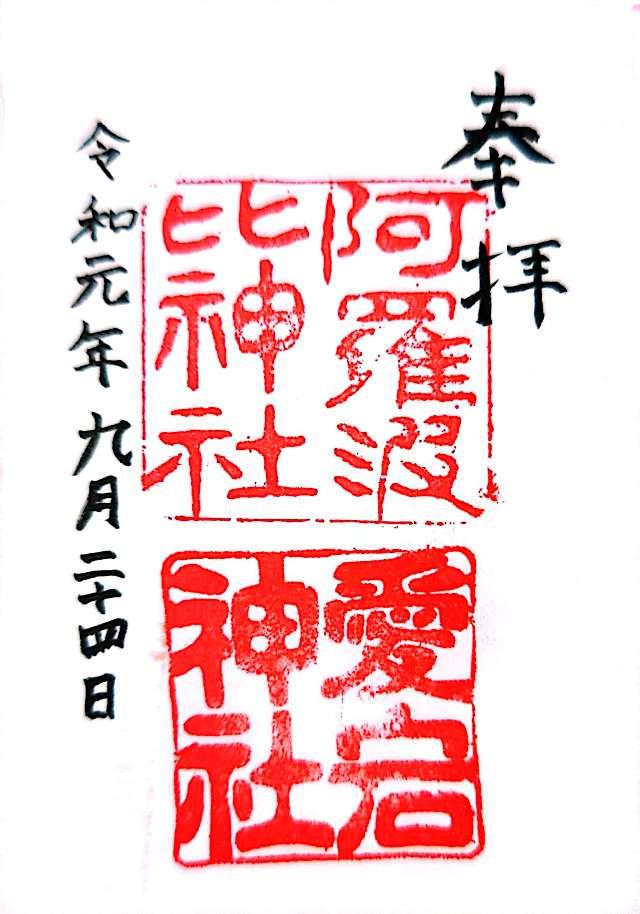 奉拝
阿羅波
比神社
愛宕
神社
令和元年九月二十四日